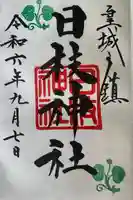 皇城之鎮
日枝神社
令和六年九月七日